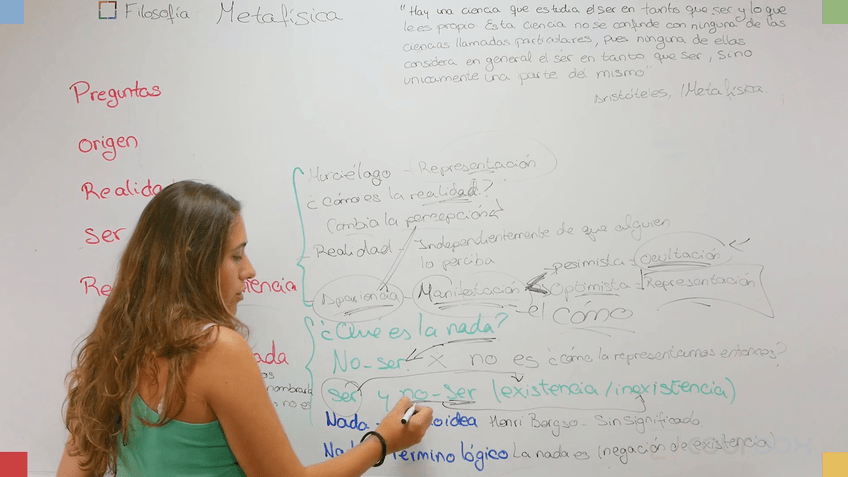 Filosofía Metafísica
"Hay una ciencia que estudia el ser en tanto que ser y lo que
le es propio. Esta ciencia no se confunde con ninguna de las
ciencias llamadas particulares, pues ninguna de ellas
considera en general el ser en tanto que ser, sino
unicamente una parte del mismo"
Aristóteles, Metafísica.
Preguntas
Origen
Realid
Ser
encia
ada
Murciélago - Representación
¿cómo es la realidad?
Cambia la percepción
Realidad - Independientemente de que alguien
lo perciba
pesimista - Ocultación
Apariencia - Manifestación Optimista - Representación
el cómo
¿Que es la nada?
No-ser X no es ¿cómo la representamos entonces?
ser y no-ser (existencia/inexistencia)
Nada - oidea Henri Bergso - Sin significado
Na Término lógico La nada es (negación de existencia)